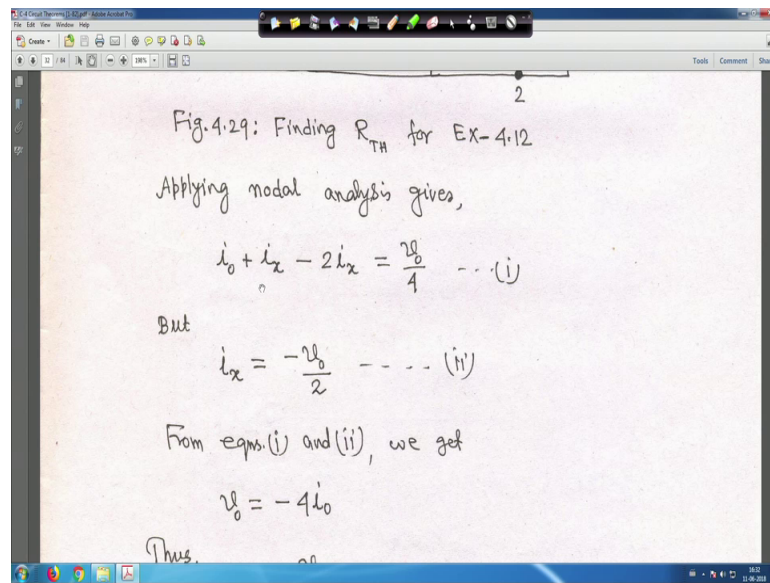 C-4 Circuit Theorems [1-82].pdf - Adobe Acrobat Pro
File Edit View Window Help
Create
32 / 84 100% Tools Comment
2
Fig. 4.29: Finding R_TH for EX-4.12
Applying nodal analysis gives,
i₀ + iₓ - 2iₓ = v₀/4 ---(i)
But
iₓ = -v₀/2 ----- (ii)
From eqns.(i) and (ii), we get
v₀ = -4i₀
Thus,
16:32
11-06-2018